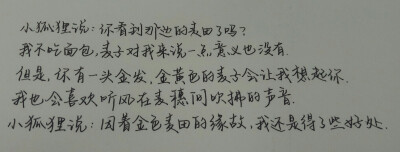 小狐狸说：你看到那边的麦田了吗？
我不吃面包，麦子对我来说一点意义也没有.
但是，你有一头金发，金黄色的麦子会让我想起你.
我也会喜欢听风在麦穗间吹拂的声音.
小狐狸说：因着金色麦田的缘故，我还是得了些好处.